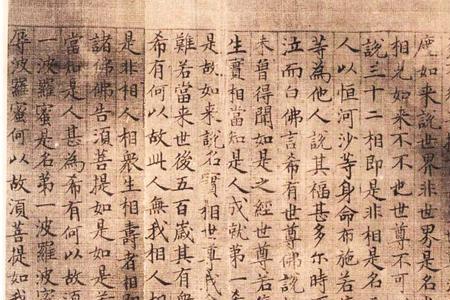 塵如来說世界非世界是名
相見如来不不也世尊不可
說三十二相即是非相是名
人以恒河沙等身命布施若
等為他人說其福甚多尔時
泣而白佛言希有世尊佛說
未曾得聞如是之經世尊若
生實相當知是人成就第一希
是故如来說名實相世尊我
難若當来世後五百歲其有衆
希有何以故此人無我相人相
是非相人相衆生相壽者相即
諸佛佛告須菩提如是如是若
當知是人甚為希有何以故須
一波羅蜜是名第一波羅蜜
辱波羅蜜何以故須菩提如我